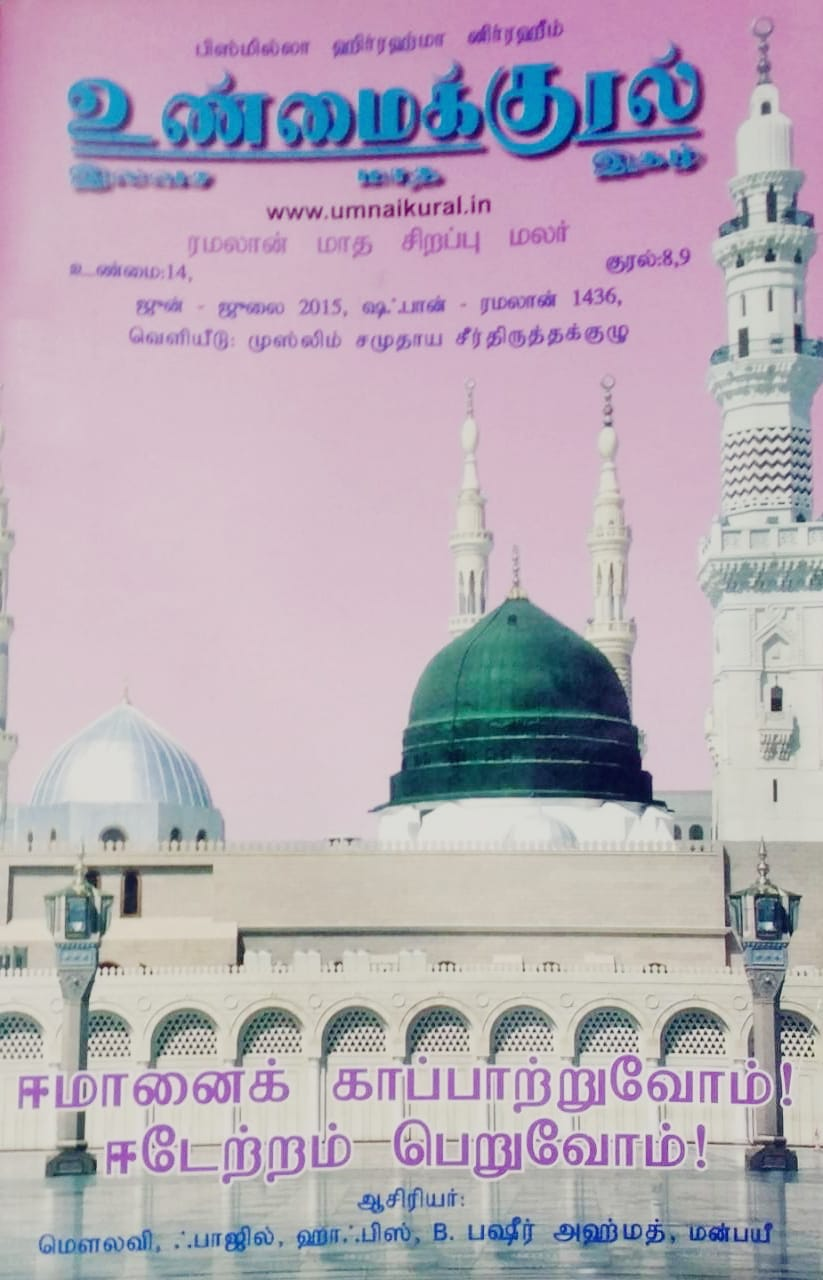 பிஸ்மில்லா ஹிர்ரஹ்மா னிர்ரஹீம்
உண்மைக்குரல்
இஸ்லாமிய மாத இதழ்
www.umnaikural.in
ரமலான் மாத சிறப்பு மலர்
உண்மை:14, குரல்:8,9
ஜுன் - ஜுலை 2015, ஷஃபான் - ரமலான் 1436,
வெளியீடு: முஸ்லிம் சமுதாய சீர்திருத்தக்குழு
ஈமானைக் காப்பாற்றுவோம்!
ஈடேற்றம் பெறுவோம்!
ஆசிரியர்:
மௌலவி, ஃபாஜில், ஹாஃபிஸ், B. பஷீர் அஹ்மத், மன்பயீ